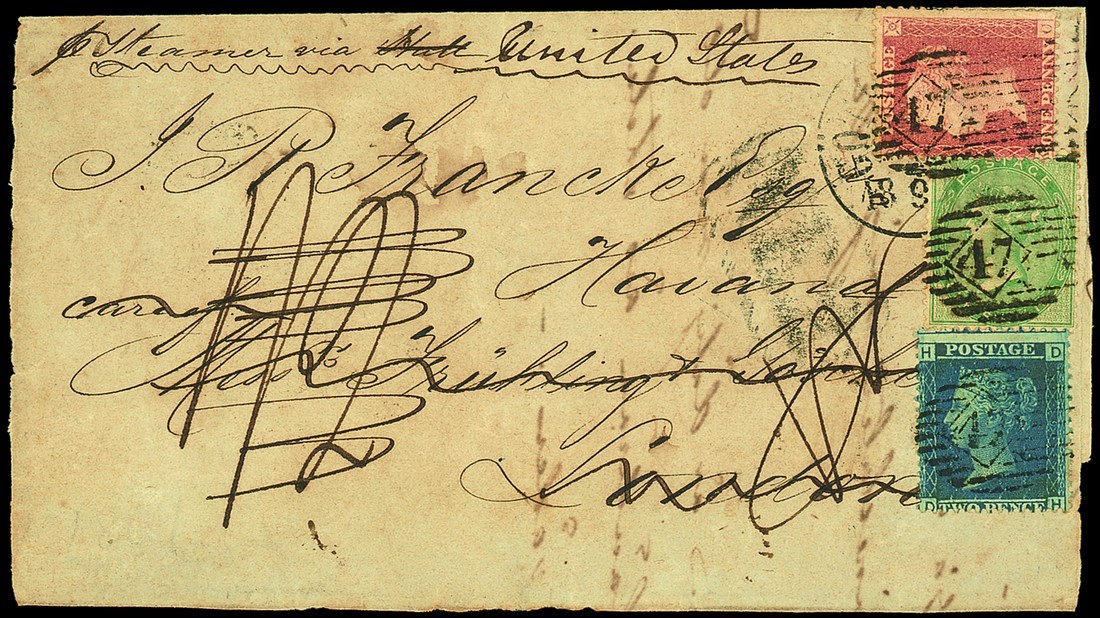 p Steamer via Hull United States
J. P. Francke Esq
Havana
care of
Messrs Frühling &
London
POSTAGE
ONE PENNY
47
POSTAGE
47
H POSTAGE D
D TWO PENCE H